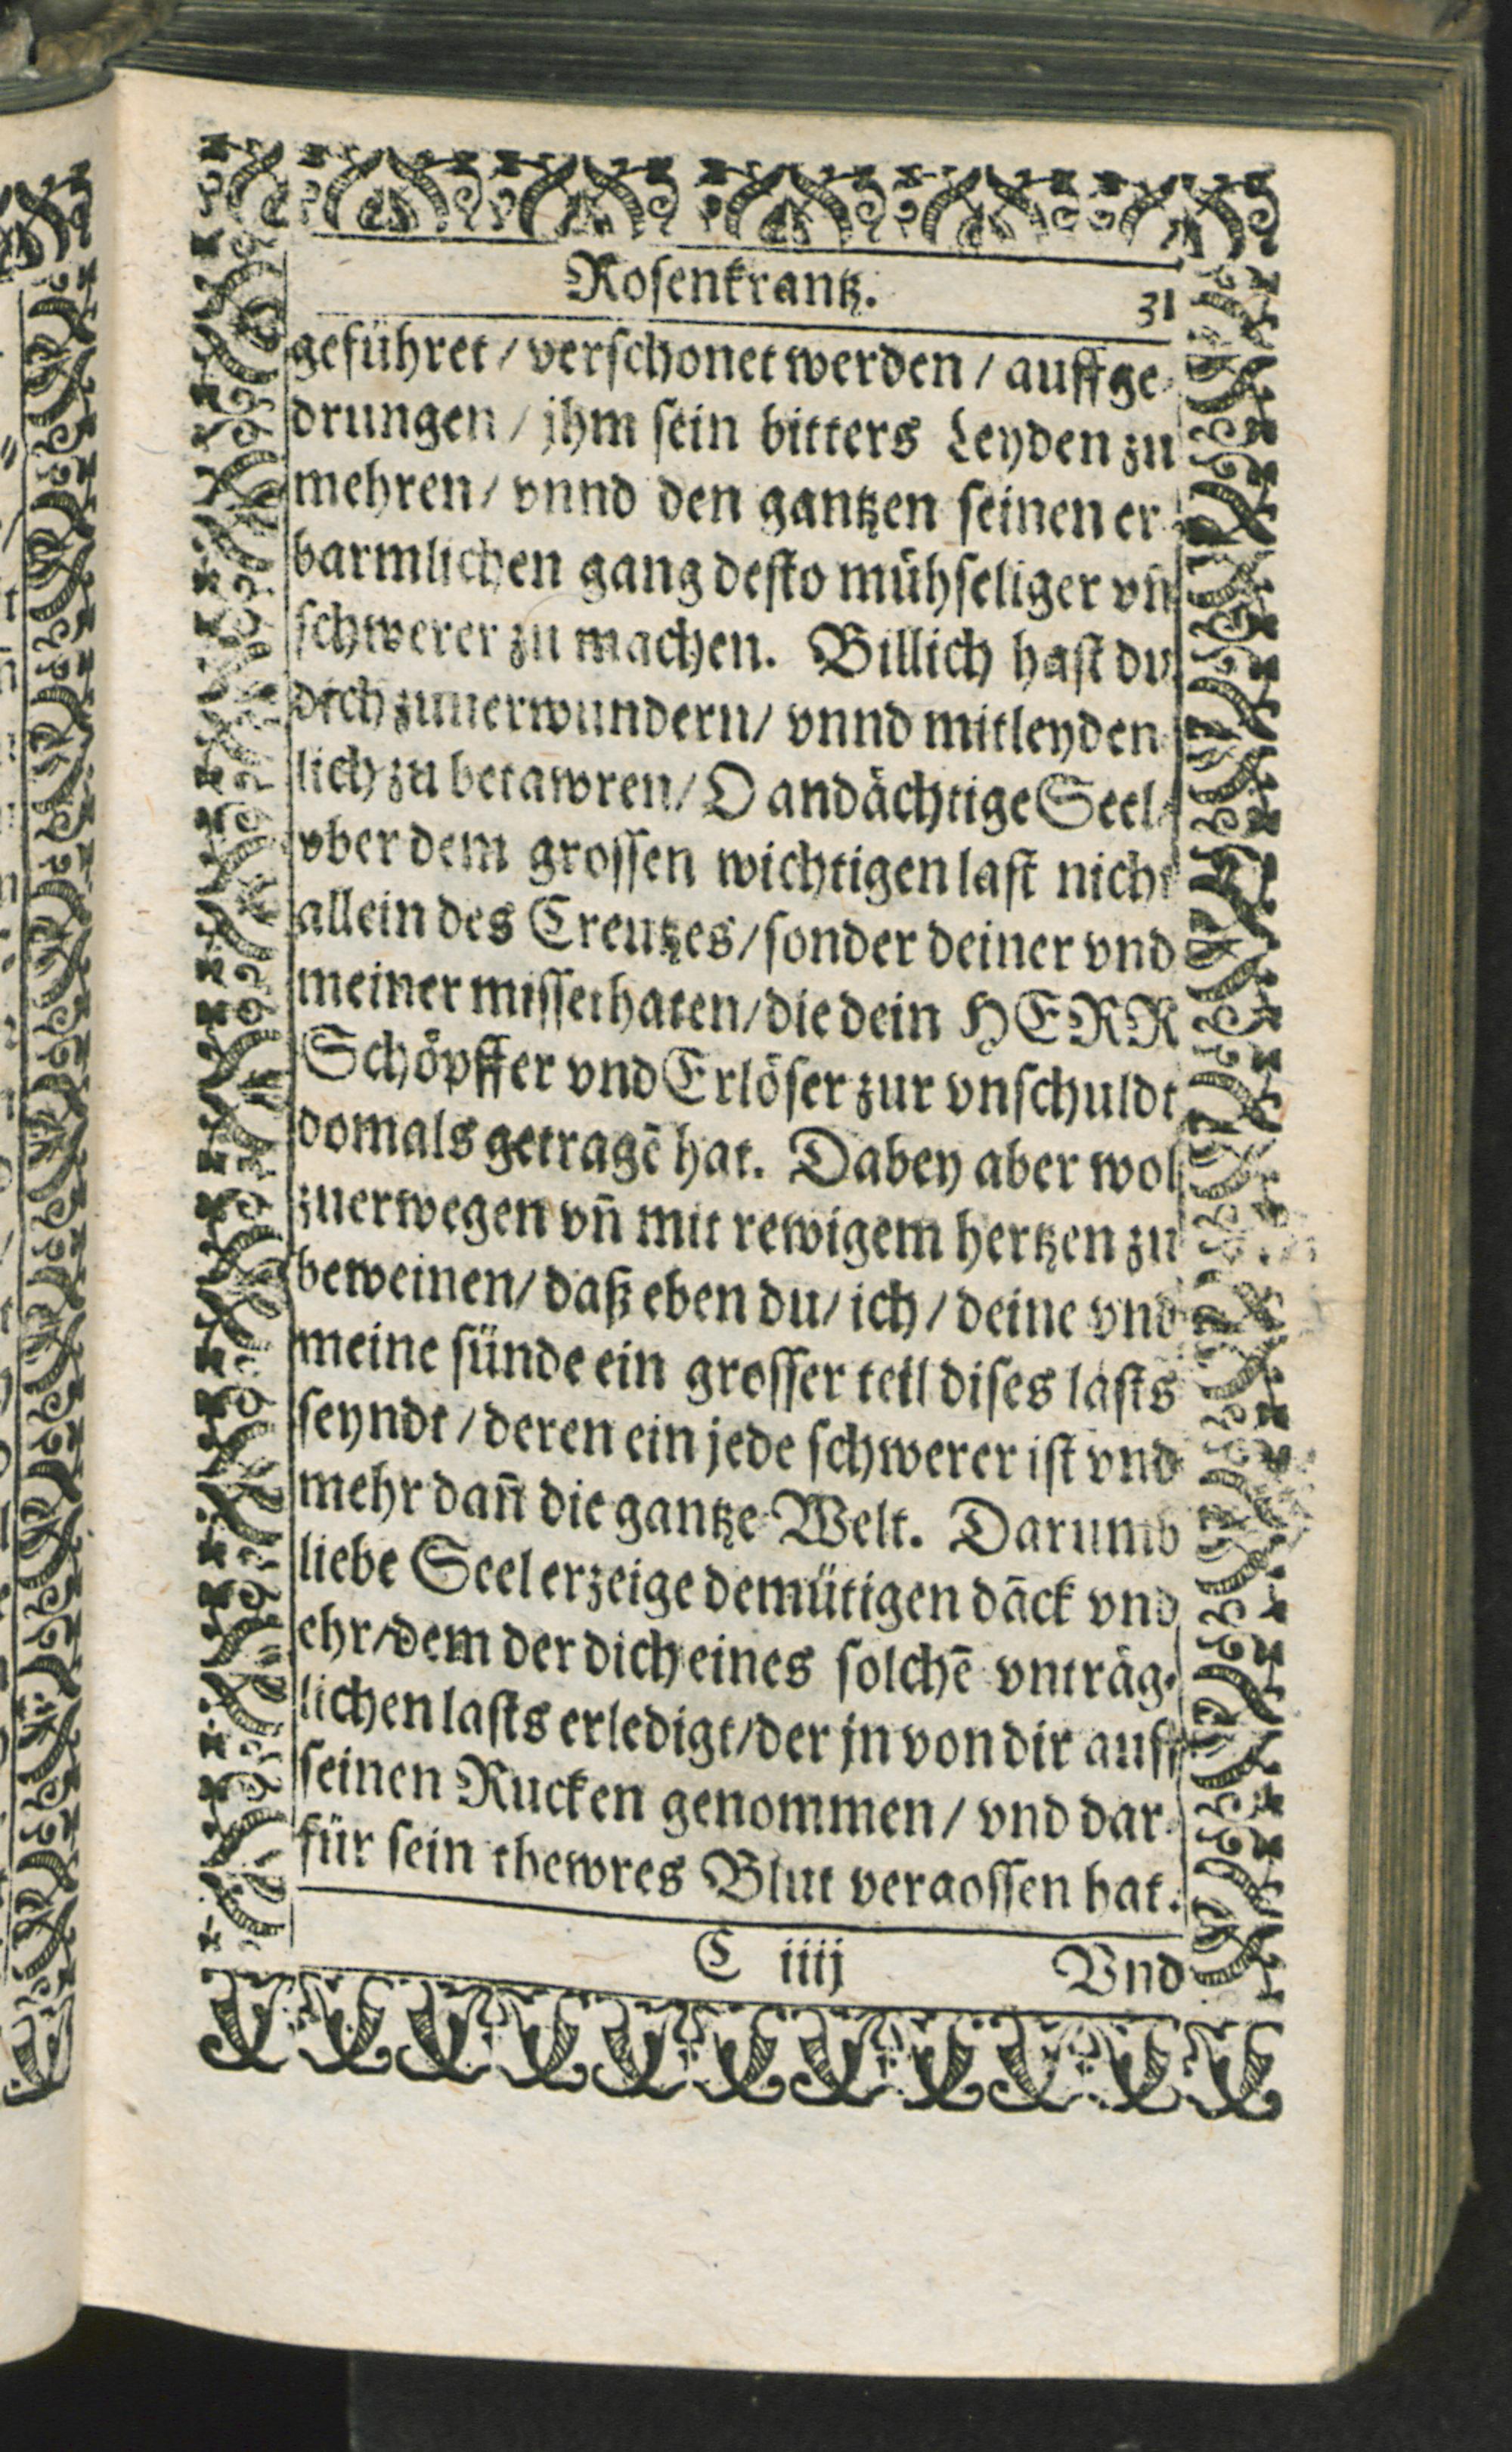 Rosenkrantz. 31
geführet / verschonet werden / auffge-
drungen / jhm sein bitters Leyden zu
mehren / vnnd den gantzen seinen er-
barmlichen gang desto mühseliger vñ
schwerer zu machen. Billich hast du
dich zuuerwundern / vnnd mitleyden-
lich zu betawren / O andächtige Seel /
vber dem grossen wichtigen last nicht
allein des Creutzes / sonder deiner vnd
meiner missethaten / die dein HERR
Schöpffer vnd Erlöser zur vnschuldt
domals getragē hat. Dabey aber wol
zuerwegen vñ mit rewigem hertzen zu
beweinen / daß eben du / ich / deine vnd
meine sünde ein grosser teil dises lasts
seyndt / deren ein jede schwerer ist vnd
mehr dañ die gantze Welt. Darumb
liebe Seel erzeige demütigen dāck vnd
ehr / dem der dich eines solchē vnträg-
lichen lasts erledigt / der jn von dir auff
seinen Rucken genommen / vnd dar-
für sein thewres Blut vergossen hat.
C iiij Vnd